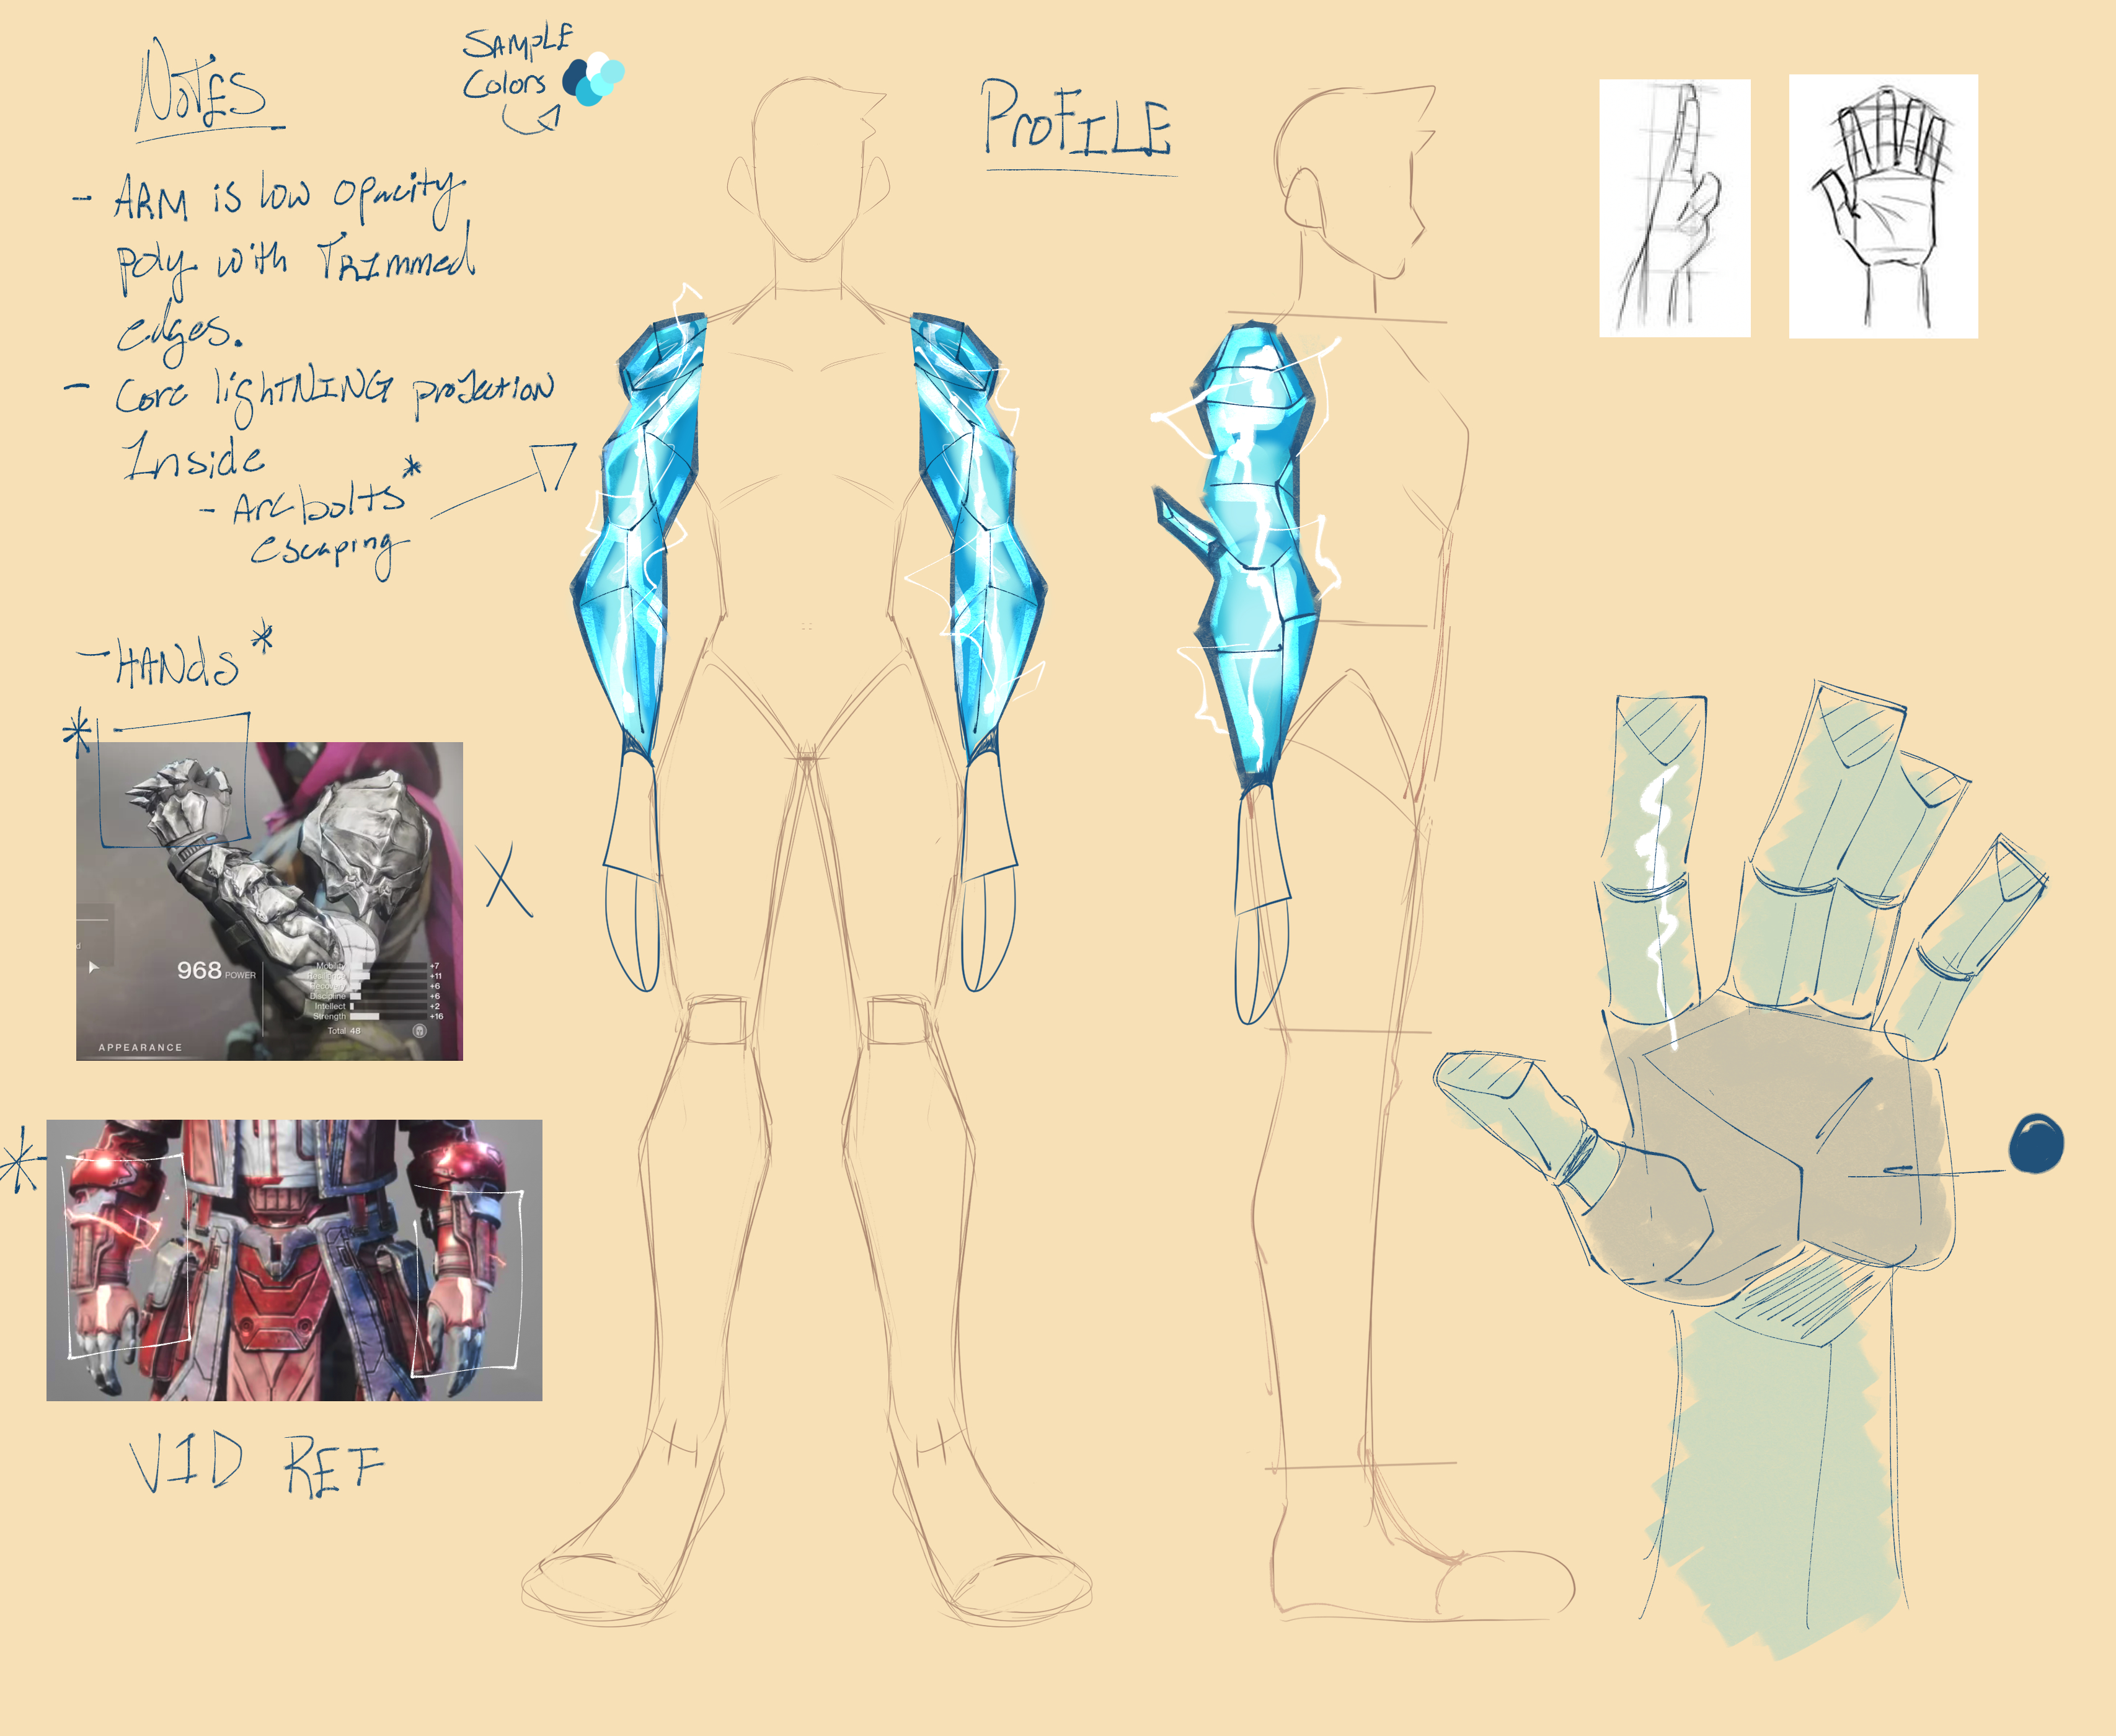 NOTES
SAMPLE
Colors
PROFILE
- ARM is low opacity
poly with TRImmed
edges.
- Core lightNING projection
Inside
- Arc bolts*
escaping
- HANds*
*
968 POWER
Mobility +7
Resilience +11
Recovery +6
Discipline +6
Intellect +2
Strength +16
Total 48
APPEARANCE
X
*
VID REF